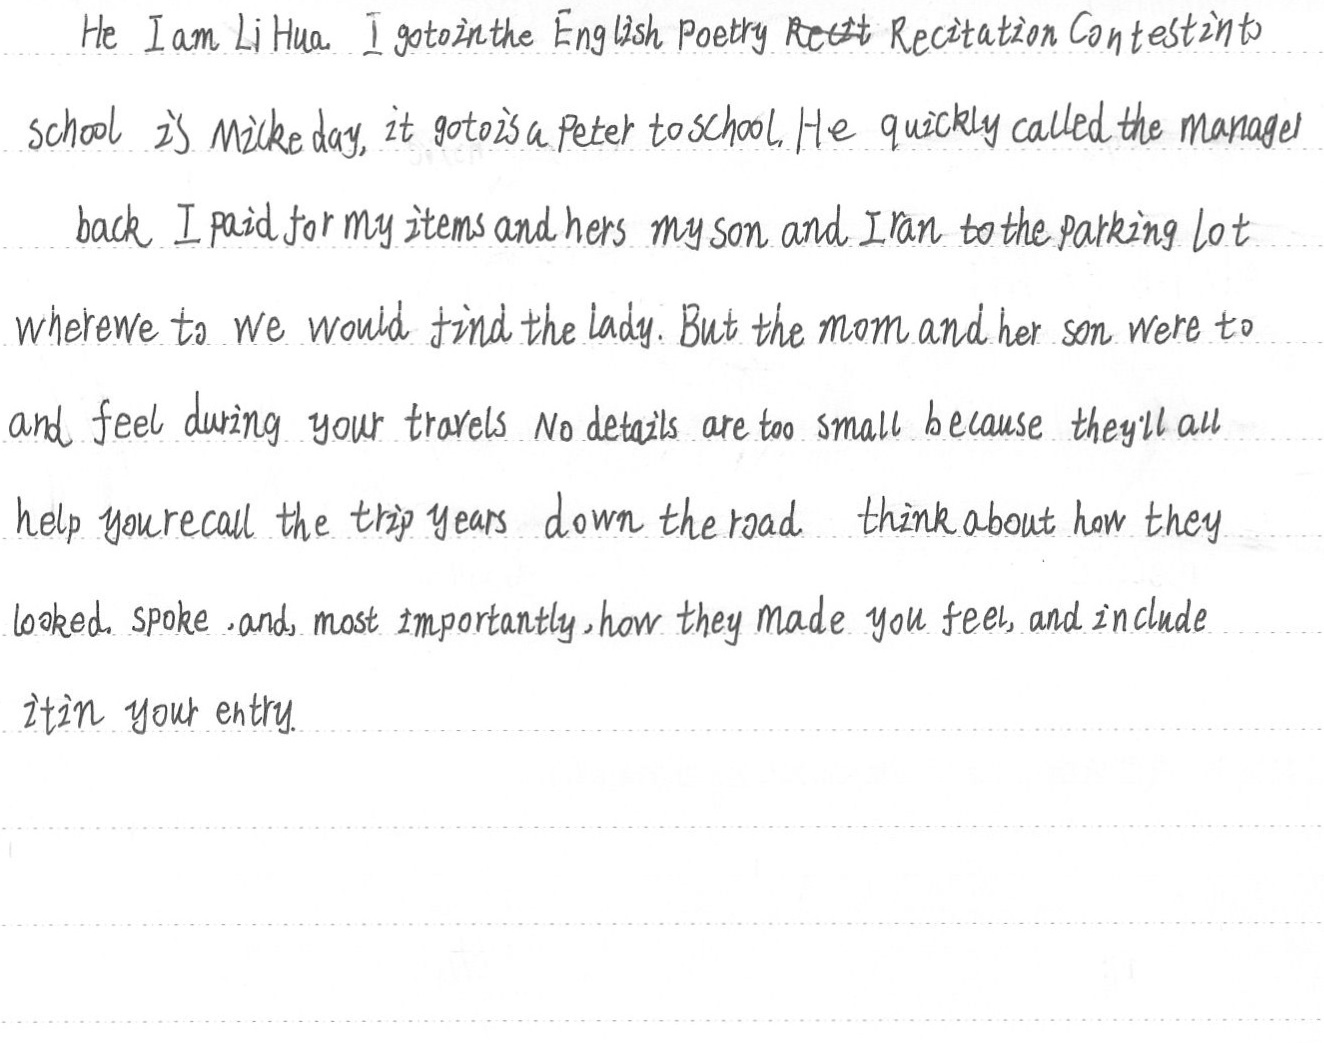 He I am Li Hua. I gotointhe English Poetry Recitation Contestinto
school is Micke day, it gotois a Peter to school. He quickly called the manager
back I paid for my items and hers my son and I ran to the parking lot
wherewe to we would find the lady. But the mom and her son were to
and feel during your travels No details are too small because they'll all
help you recall the trip years down the road think about how they
looked. spoke, and, most importantly, how they made you feel, and include
itin your entry.